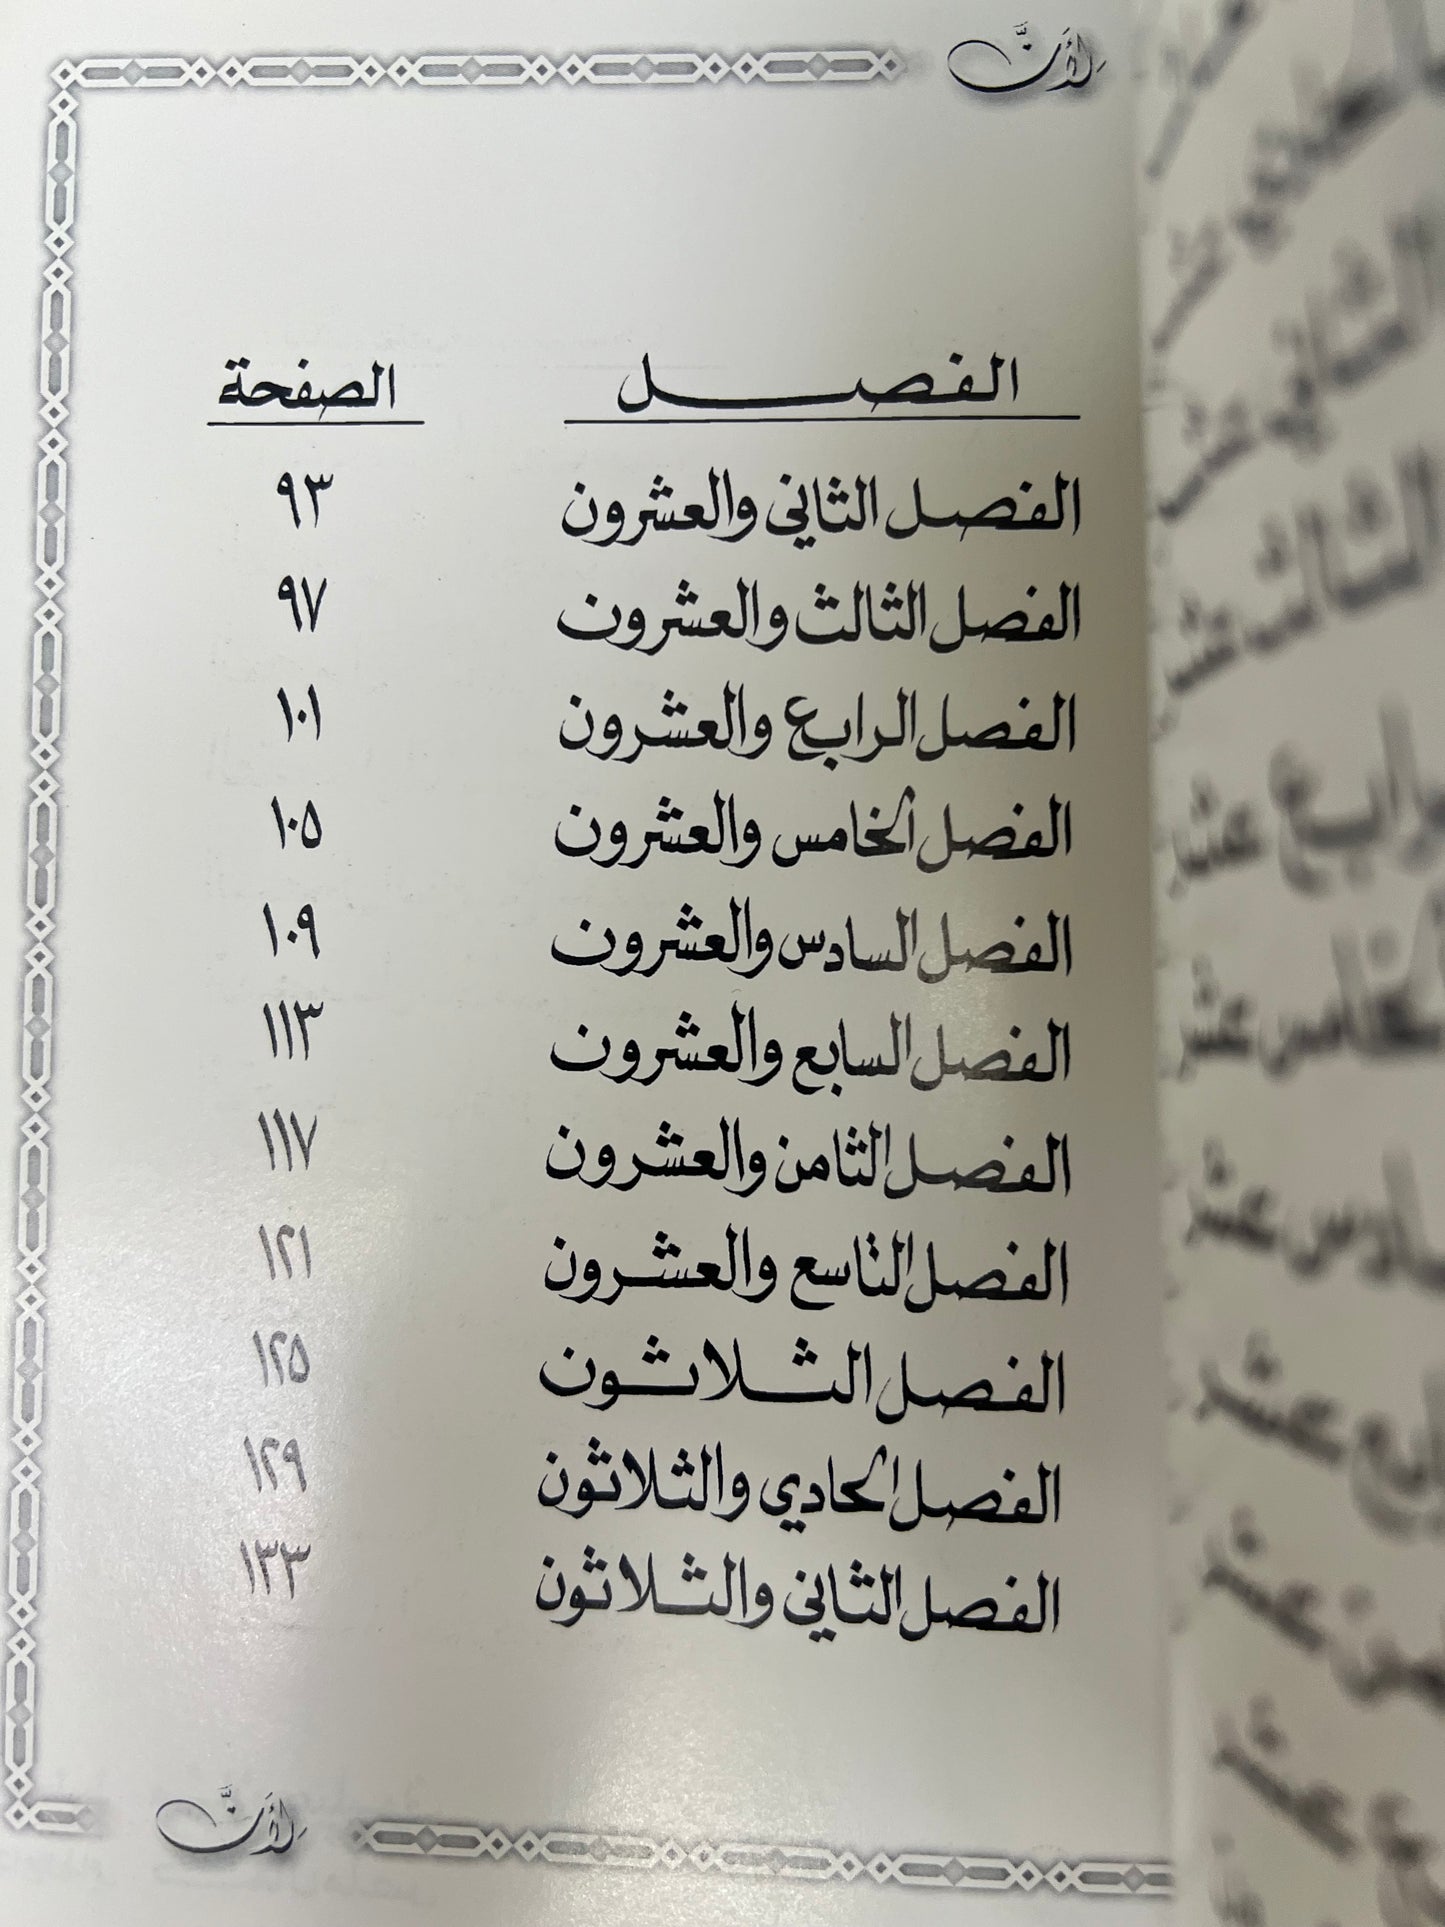 لِأَنَّ
الفصل الصفحة
الفصل الثاني والعشرون ٩٣
الفصل الثالث والعشرون ٩٧
الفصل الرابع والعشرون ١٠١
الفصل الخامس والعشرون ١٠٥
الفصل السادس والعشرون ١٠٩
الفصل السابع والعشرون ١١٣
الفصل الثامن والعشرون ١١٧
الفصل التاسع والعشرون ١٢١
الفصل الثلاثون ١٢٥
الفصل الحادي والثلاثون ١٢٩
الفصل الثاني والثلاثون ١٣٣
لِأَنَّ